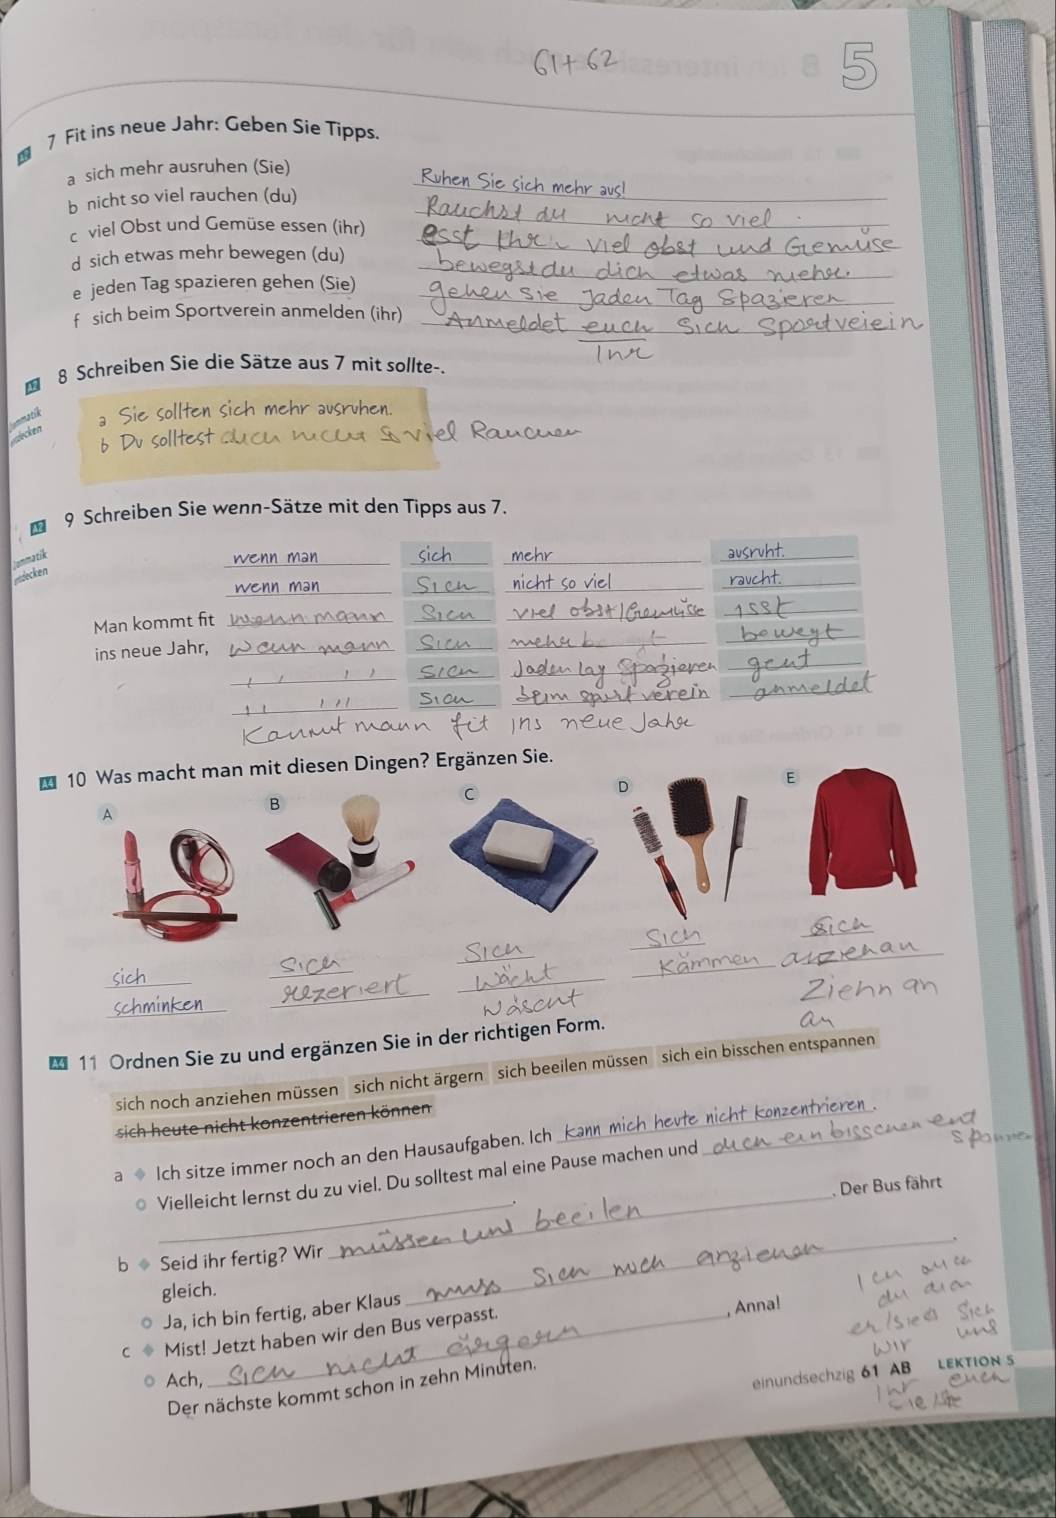 61+62
5
7 Fit ins neue Jahr: Geben Sie Tipps.
a sich mehr ausruhen (Sie) Ruhen Sie sich mehr aus!
b nicht so viel rauchen (du) Rauchst du nicht so viel.
c viel Obst und Gemüse essen (ihr) esst Ihr viel obst und Gemüse
d sich etwas mehr bewegen (du) bewegst du dich etwas mehr.
e jeden Tag spazieren gehen (Sie) gehen Sie Jaden Tag Spazieren
f sich beim Sportverein anmelden (ihr) Anmeldet euch Sich Sportveiein
Ihr
A2 8 Schreiben Sie die Sätze aus 7 mit sollte-.
entdecken
a Sie sollten sich mehr ausruhen.
b Du solltest dich nicht so viel Rauchen
A2 9 Schreiben Sie wenn-Sätze mit den Tipps aus 7.
entdecken
wenn man sich mehr ausruht.
wenn man Sich nicht so viel raucht.
Man kommt fit wenn mann Sich viel obst/Gemüse isst
ins neue Jahr, Wenn mann Sich mehr bewegt
sich Jaden Tag Spazieren geht
sich beim sport verein anmeldet
Kommt mann fit ins neue Jahr
A4 10 Was macht man mit diesen Dingen? Ergänzen Sie.
A B C D E
sich sich sich sich sich
schminken rezeriert Wächt Kämmen anziehan
Wäscht
Ziehn an
an
A4 11 Ordnen Sie zu und ergänzen Sie in der richtigen Form.
sich noch anziehen müssen sich nicht ärgern sich beeilen müssen sich ein bisschen entspannen
sich heute nicht konzentrieren können
a Ich sitze immer noch an den Hausaufgaben. Ich kann mich heute nicht konzentrieren.
Vielleicht lernst du zu viel. Du solltest mal eine Pause machen und dich ein bisschen ent
spannen
.
b Seid ihr fertig? Wir müssen uns beeilen. Der Bus fährt
gleich.
Ja, ich bin fertig, aber Klaus muss Sich noch anziehen.
c Mist! Jetzt haben wir den Bus verpasst.
Ach, sich nicht ärgern, Anna!
Der nächste kommt schon in zehn Minuten.
du dich
er/sie/es sich
wir uns
Ihr euch
einundsechzig 61 AB LEKTION 5